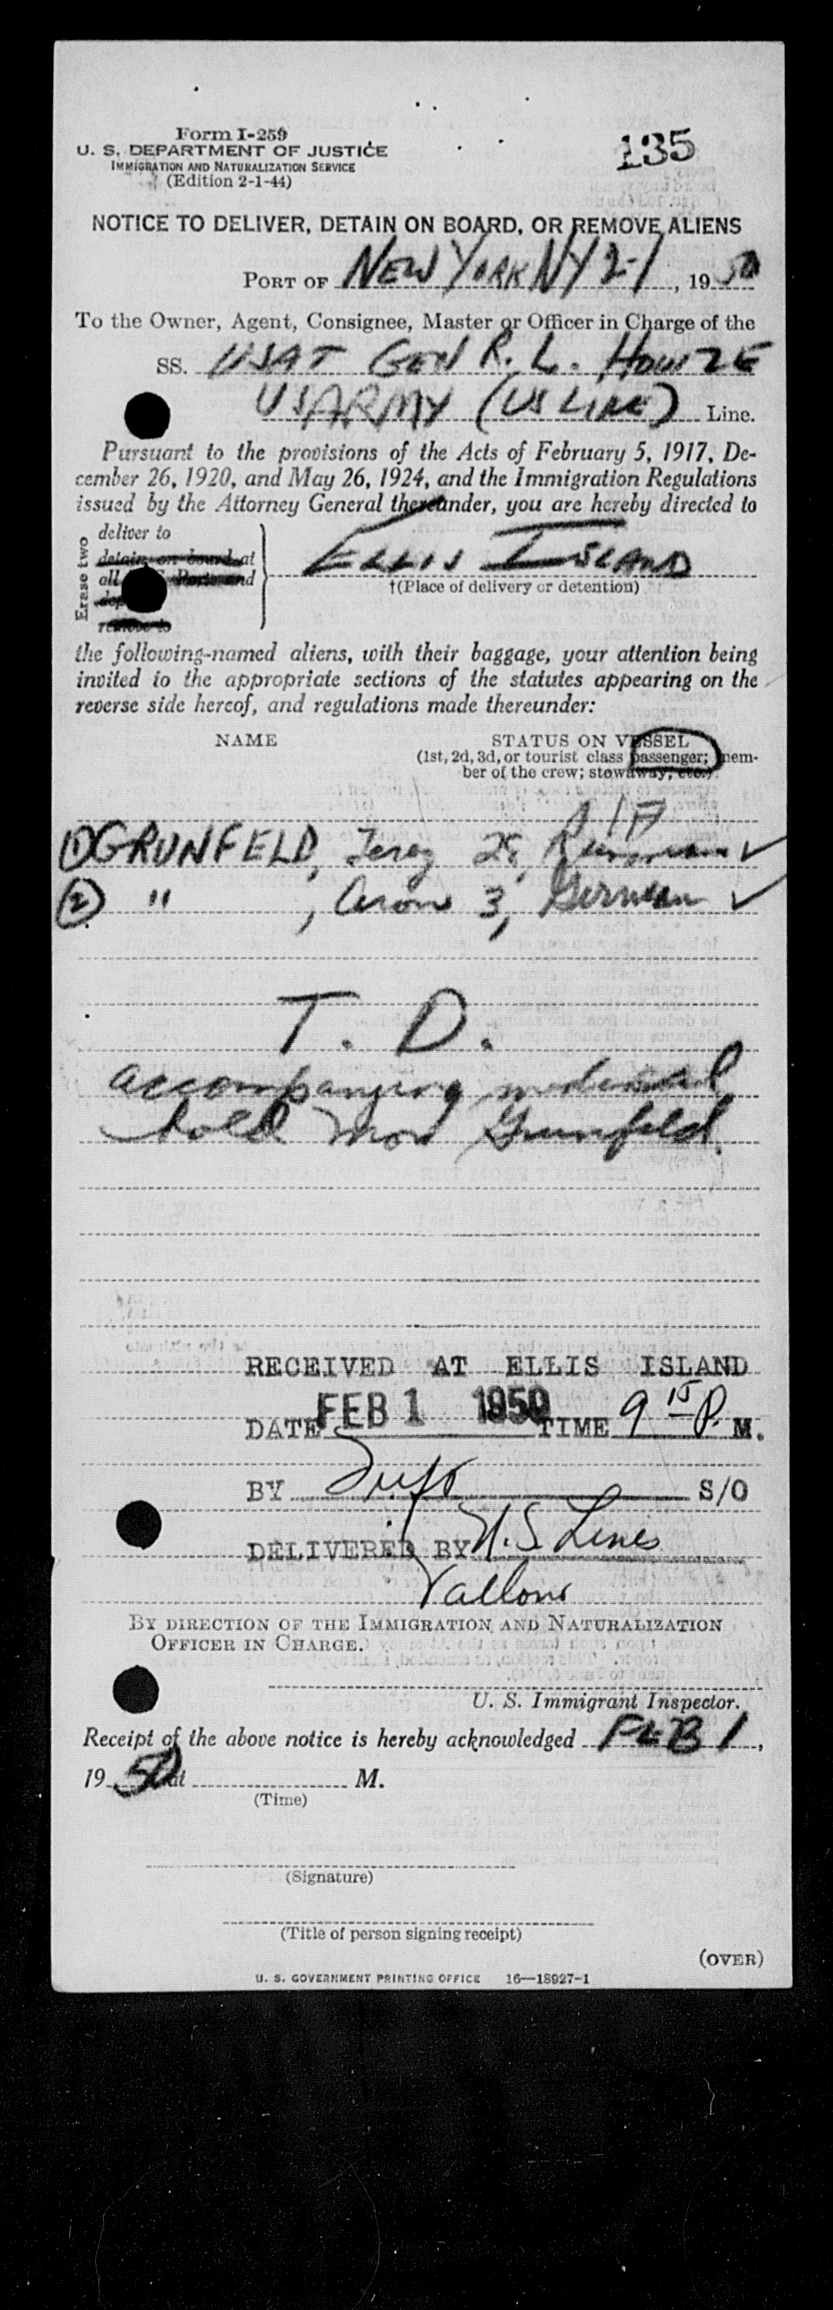 Form I-259
U. S. DEPARTMENT OF JUSTICE
IMMIGRATION AND NATURALIZATION SERVICE
(Edition 2-1-44)
135
NOTICE TO DELIVER, DETAIN ON BOARD, OR REMOVE ALIENS
PORT OF NEW YORK NY 2-1, 1950
To the Owner, Agent, Consignee, Master or Officer in Charge of the
SS. USAT GEN R. L. HOWZE
US ARMY (US LINE) Line.
Pursuant to the provisions of the Acts of February 5, 1917, De-
cember 26, 1920, and May 26, 1924, and the Immigration Regulations
issued by the Attorney General thereunder, you are hereby directed to
Erase two
deliver to
detain on board at
all Ports and
remove to
ELLIS ISLAND
†(Place of delivery or detention)
the following-named aliens, with their baggage, your attention being
invited to the appropriate sections of the statutes appearing on the
reverse side hereof, and regulations made thereunder:
NAME
STATUS ON VESSEL
(1st, 2d, 3d, or tourist class passenger; mem-
ber of the crew; stowaway, etc.)
① GRUNFELD, 28, ✓
② " , Aron 3, German ✓
T. D.
accompanying medical
hold Mor Grunfeld.
RECEIVED AT ELLIS ISLAND
DATE FEB 1 1950 TIME 9 15 P. M.
BY S/O
DELIVERED BY U.S. Lines
Vallone
BY DIRECTION OF THE IMMIGRATION AND NATURALIZATION
OFFICER IN CHARGE.
U. S. Immigrant Inspector.
Receipt of the above notice is hereby acknowledged FEB 1,
1950 at M.
(Time)
(Signature)
(Title of person signing receipt)
(OVER)
U. S. GOVERNMENT PRINTING OFFICE 16—18927-1